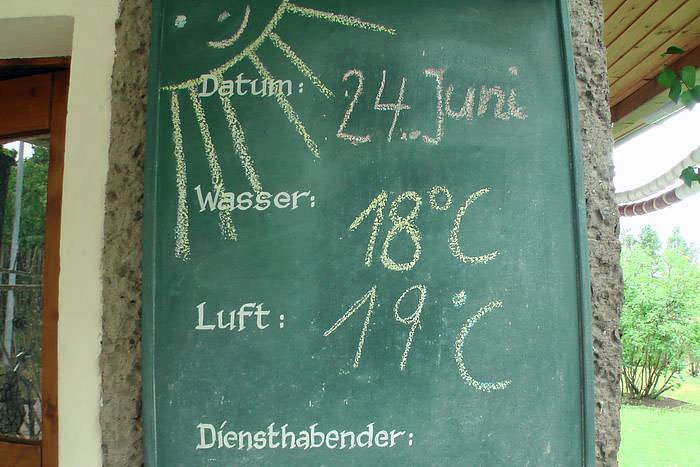 Datum: 24. Juni
Wasser: 18°C
Luft: 19°C
Diensthabender: